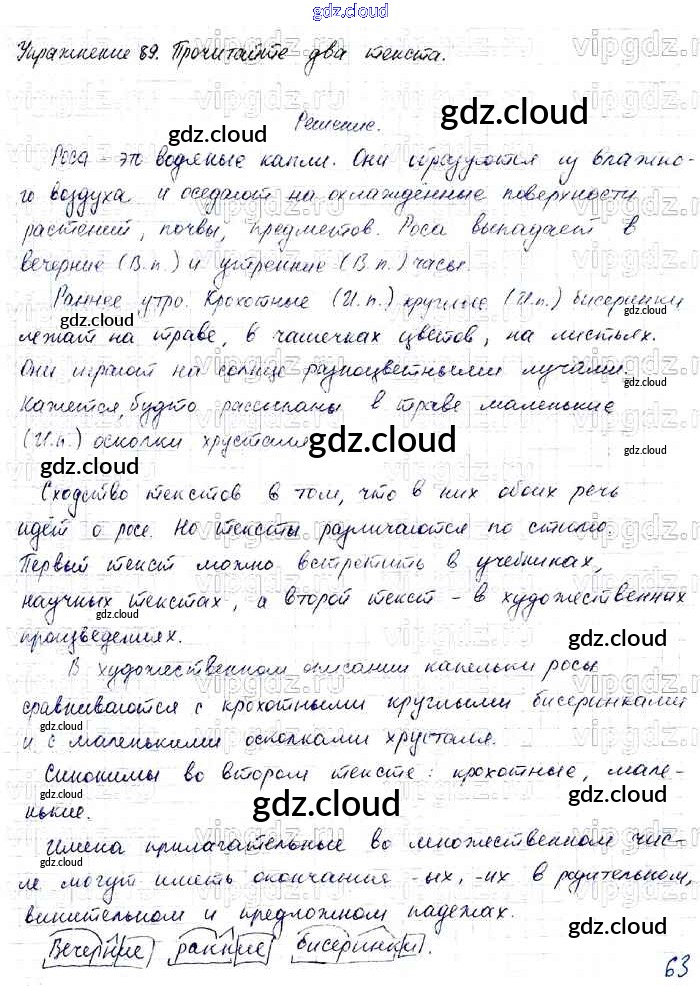 gdz.cloud
Упражнение 89. Прочитайте два текста.
Решение.
Роса - это водяные капли. Они образуются из влажно-
го воздуха и оседают на охлаждённые поверхности
растений, почвы, предметов. Роса выпадает в
вечерние (В.п.) и утренние (В.п.) часы.
Раннее утро. Крохотные (И.п.) круглые (И.п.) бисеринки
лежат на траве, в чашечках цветов, на листьях.
Они играют на солнце разноцветными лучами.
Кажется, будто рассыпаны в траве маленькие
(И.п.) осколки хрусталя.
Сходство текстов в том, что в них обоих речь
идёт о росе. Но тексты различаются по стилю.
Первый текст можно встретить в учебниках,
научных текстах, а второй текст - в художественных
произведениях.
В художественном описании капельки росы
сравниваются с крохотными круглыми бисеринками
и с маленькими осколками хрусталя.
Синонимы во втором тексте: крохотные, мале-
нькие.
Имена прилагательные во множественном чис-
ле могут иметь окончания -ых, -их в родительном,
винительном и предложном падежах.
Вечерние, ранние, бисеринки.
63